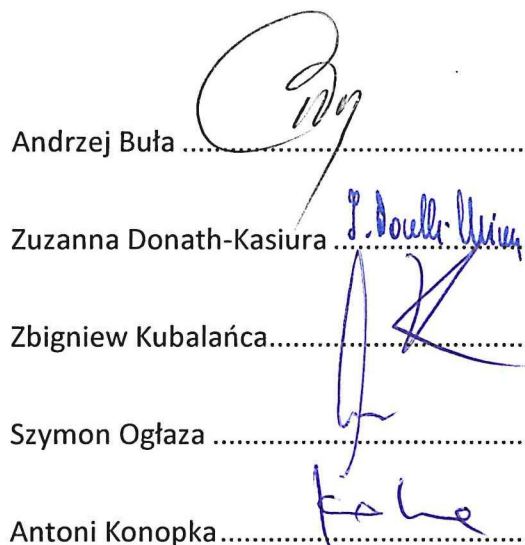 Andrzej Buła ....................................................
Zuzanna Donath-Kasiura .............................
Zbigniew Kubalańca.......................................
Szymon Ogłaza ................................................
Antoni Konopka...............................................